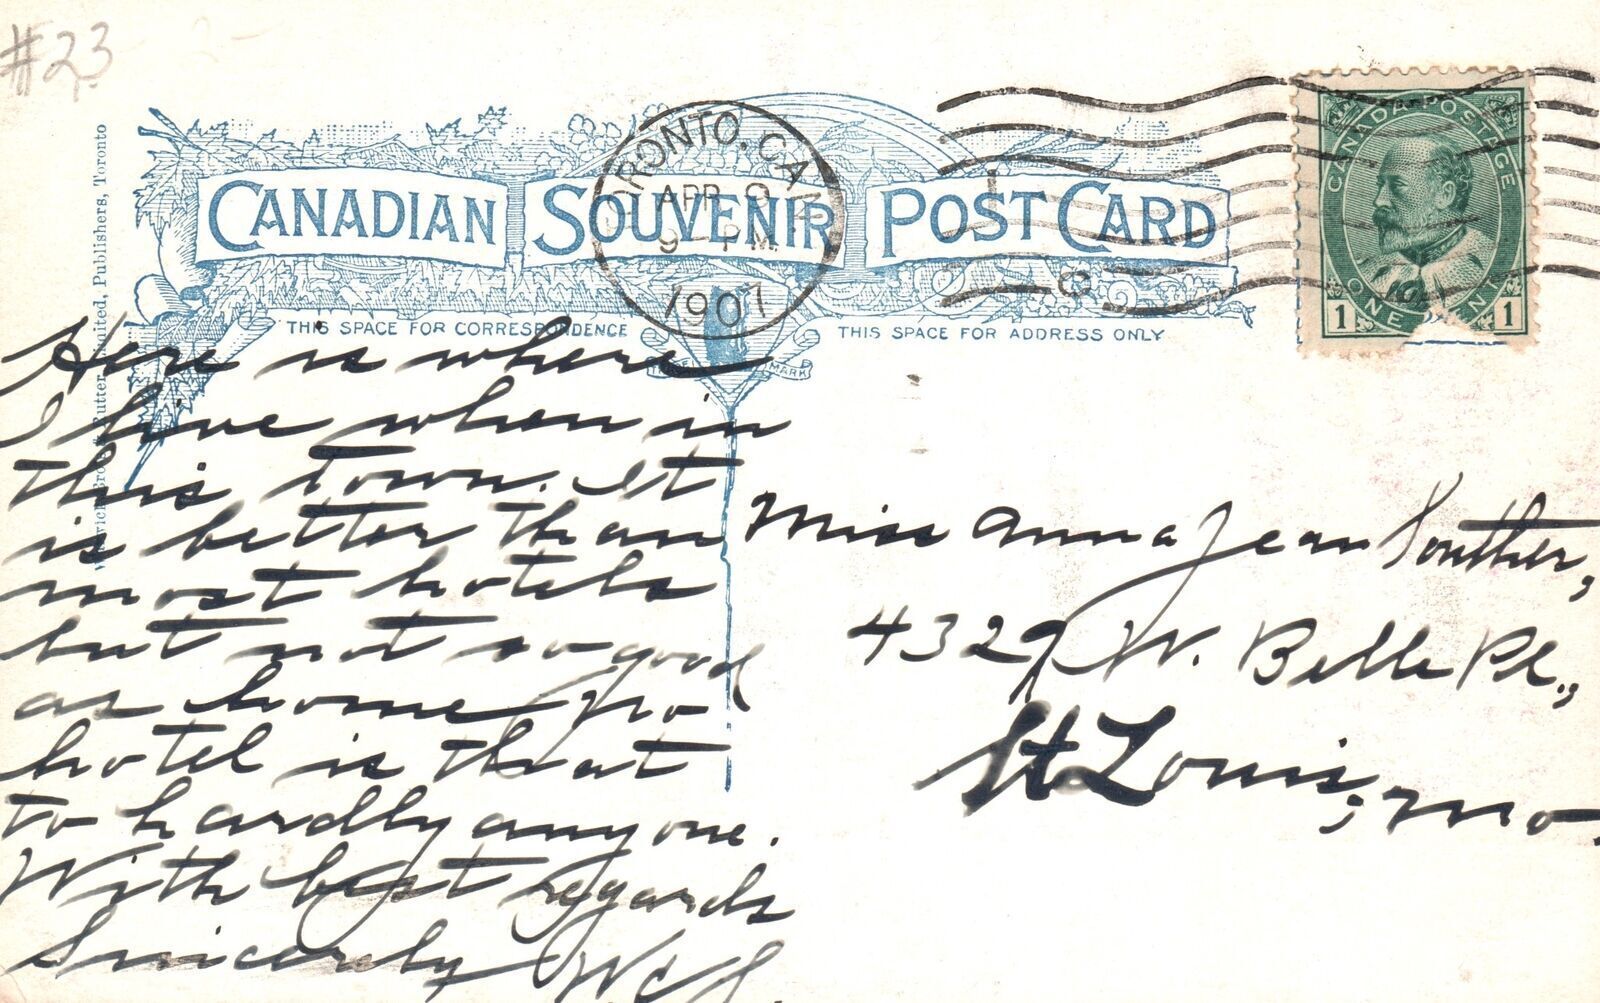 #23
Warwick Bro's & Rutter, Limited, Publishers, Toronto
CANADIAN SOUVENIR POST CARD
TORONTO, CAN.
APR 9
9- PM
1907
CANADA POSTAGE
ONE CENT
1 1
THIS SPACE FOR CORRESPONDENCE
THIS SPACE FOR ADDRESS ONLY
TRADE MARK
Here is where
I live when in
this town. It
is better than
most hotels
but not so good
as home, no
hotel is that
to hardly anyone.
With best regards
Sincerely
Miss Anna Jean Souther,
4329 W. Belle Pl.,
St Louis, Mo.